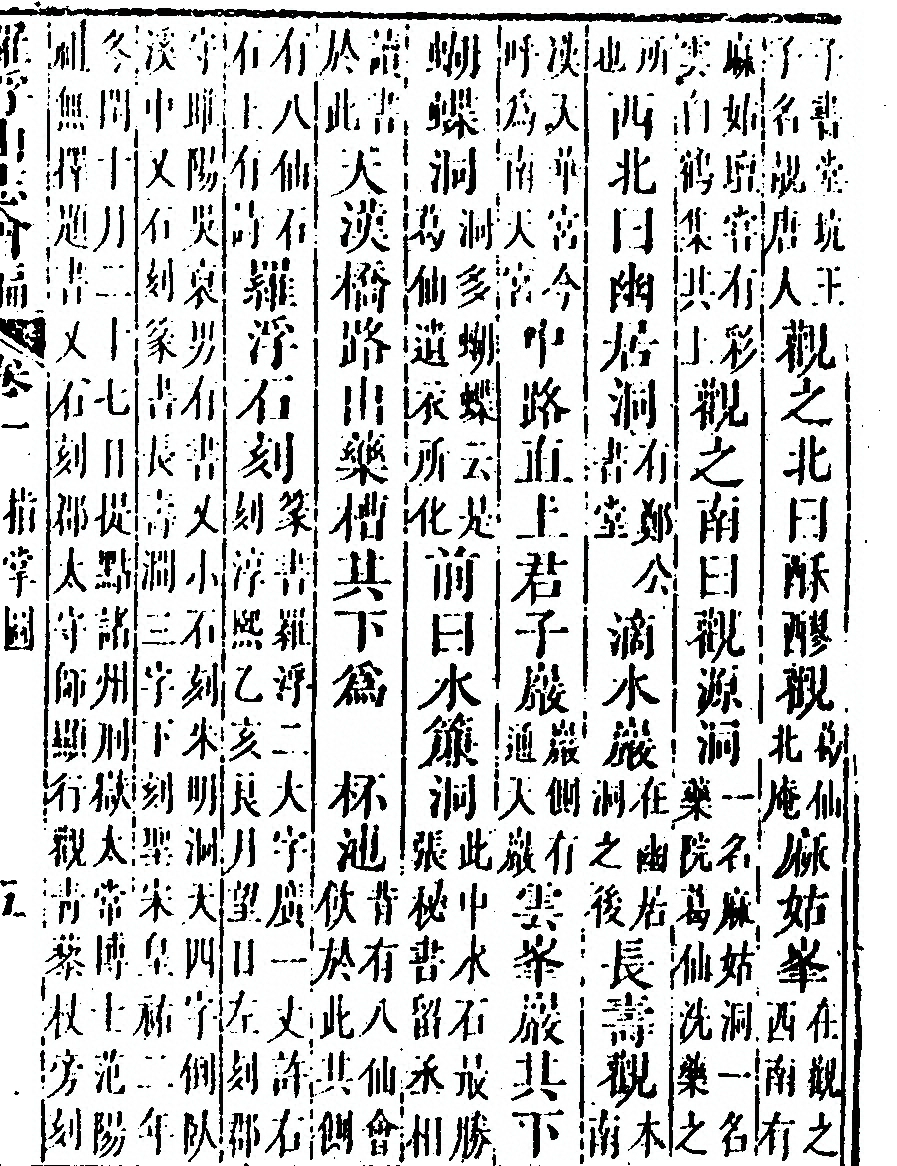 子書堂坑王子名觀唐人觀之北曰酥醪觀葛仙北庵麻姑峯在觀之西南有
麻姑壇客有彩雲白鶴集其上觀之南曰觀源洞一名麻姑洞一名藥院葛仙洗藥之
所也西北曰幽居洞有鄭公書堂滴水巖在幽居洞之後長壽觀本南
漢天華宮今呼為南天宮中路直上君子巖巖側有通天巖雲峯巖其下
蝴蝶洞洞多蝴蝶云是葛仙遺衣所化前曰水簾洞此中水石最勝張秘書留丞相
讀書於此天漢橋路出藥槽其下爲杯池昔有八仙會飲於此其側
有八仙石石上有詩羅浮石刻篆書羅浮二大字廣一丈許右刻淳熙乙亥良月望日左刻郡
守睢陽吳哀男有書又小石刻朱明洞天四字倒臥溪中又石刻篆書長壽澗三字下刻聖宋皇祐二年
冬閏十月二十七日提點諸州刑獄太常博士范陽祖無擇題書又石刻郡太守師顯行觀青藜杖旁刻
羅浮山志會編 卷一 指掌圖 五